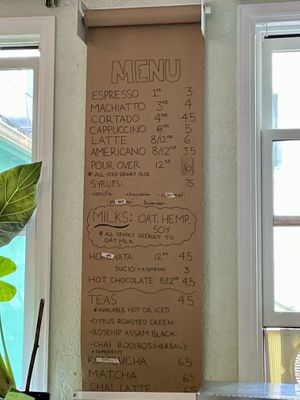 MENU
ESPRESSO 1oz 3
MACHIATTO 3oz 4
CORTADO 4oz 4.5
CAPPUCCINO 6oz 5
LATTE 8/12oz 6
AMERICANO 8/12oz 3.5
POUR OVER 12oz 6
* ALL ICED DRINKS 12OZ
SYRUPS: .75
vanilla - chocolate -
lavender
MILKS: OAT. HEMP.
SOY
* ALL DRINKS DEFAULT TO
OAT MILK
12oz 4.5
SUCIO + espresso 3
HOT CHOCOLATE 8/12oz 4.5
TEAS 4.5
* AVAILABLE HOT OR ICED
- CITRUS ROASTED GREEN -
- ROSEHIP ASSAM BLACK -
- CHAI ROOIBOS (HERBAL) -
6.5
MATCHA 6.5
CHAI LATTE 6.5